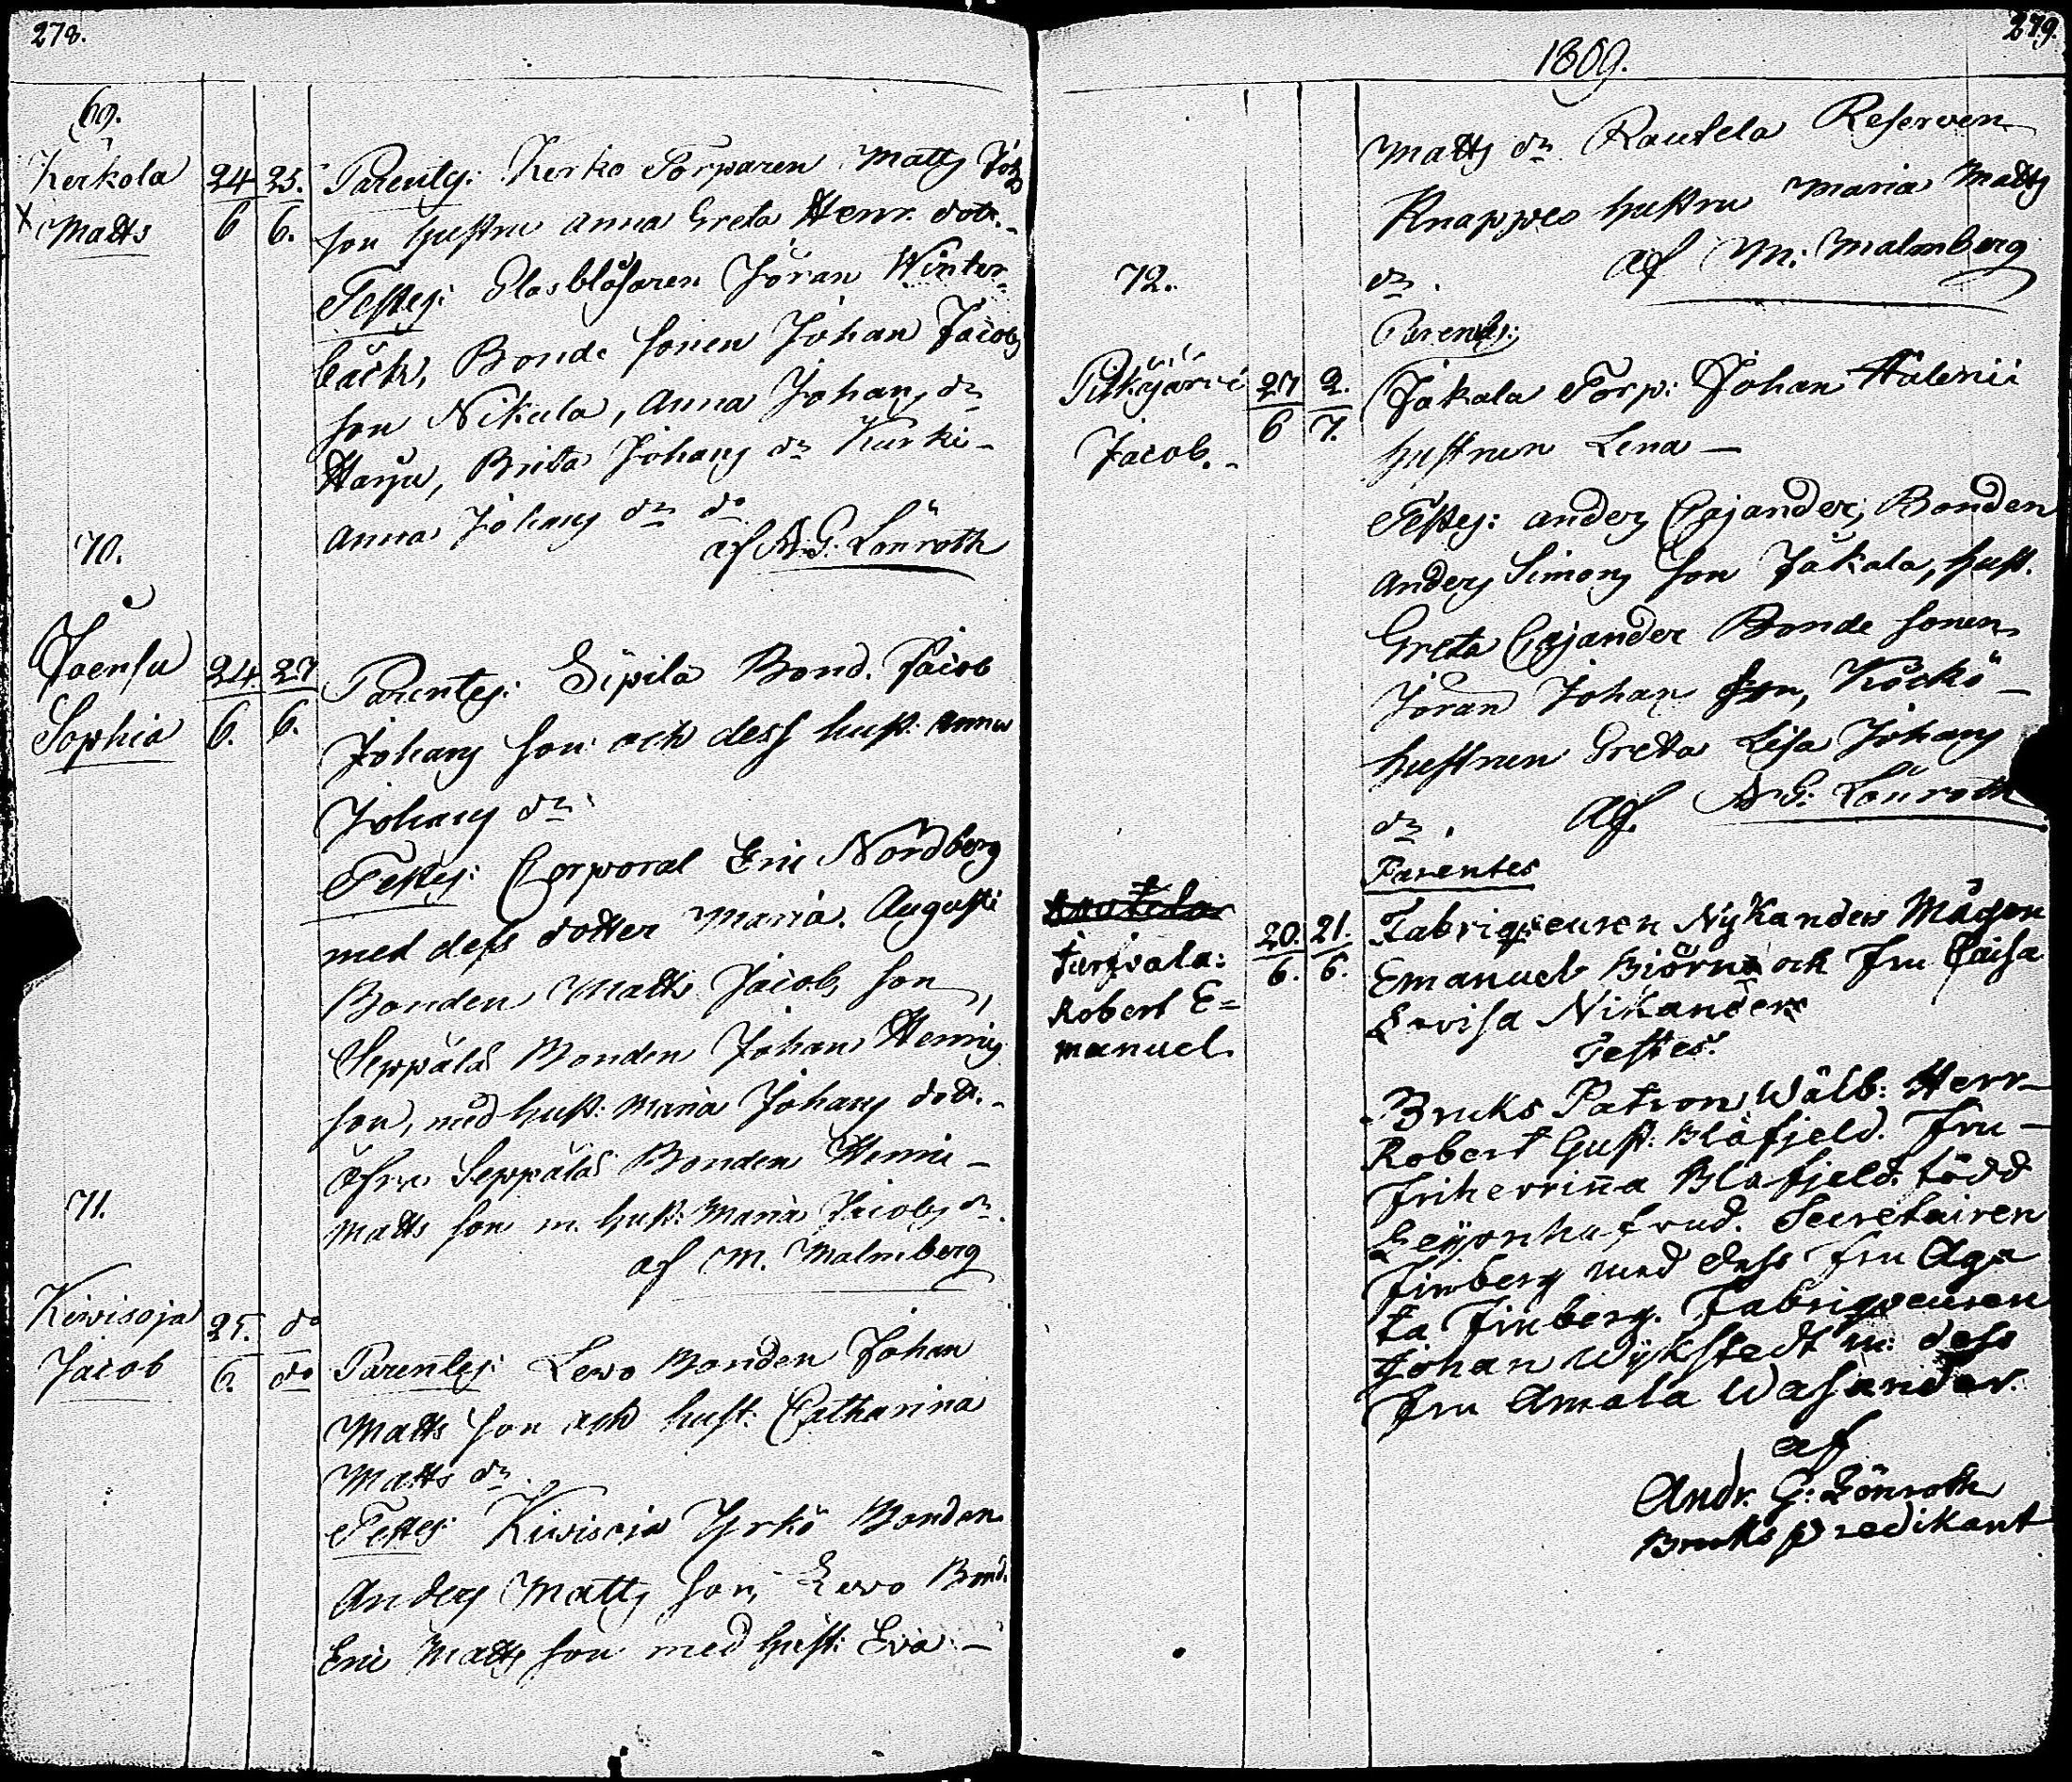 278.
69.
Kerkola 24 25. Parentes: Kerko Torparen Matts Joh
x Matts 6 6. son hustru Anna Greta Henr. dott.
Testes: Glasblåsaren Jöran Winter
bäck, Bonde sonen Johan Jacobs
son Nikula, Anna Johans dr
Harju, Brita Johans dr Kurki-
Anna Johans dr do
af A. G. Lönroth
70.
Joensu 24. 27 Parentes: Sipilä Bond. Jacob
Sophia 6. 6. Johans son och dess hust: Anna
Johans dr
Testes: Corporal Eric Nordberg
med dess dotter Maria. Augusti
Bonden Matts Jacobs son,
Seppälä Bonden Johan Henrics
son, med hust: Maria Johans dott.
öfre Seppälä Bonden Henric
Matts son m. hust: Maria Jacobs dr.
af M. Malmberg
71.
Kiwisoja 25. do
Jacob 6. do Parentes: Lewo Bonden Johan
Matts son och hust: Catharina
Matts dr.
Testes: Kiwisoja Yrkö Bonden
Anders Matts son, Lewo Bond.
Eric Matts son med hust: Eva -
279.
1809.
Matts dr Rautela Reserven
Knappes hustru Maria Matts
dr. af M: Malmberg
72.
Parentes:
Pitkäjärvi 27 2. Jakala Torp: Johan
Jacob. 6 7. hustrun Lena -
Testes: Anders Cajander, Bonden
Anders Simons son Jakala, hust.
Greta Cajander Bonde sonen
Jöran Johans son, Köckö
hustrun Greta Lisa Johans
dr. Af. A. G: Lönroth
Parentes
20. 21. Fabriqveuren Nykanders Mågen
6. 6. Emanuel Biörn och Fru Caisa
Robert E= Lovisa Nikander
manuel. Testes:
Bruks Patron Wälb: Herr-
Robert Gust: Blåfjeld. Fru -
Friherrinna Blåfjeld. född
Leyonhufvud. Secretairen
Finberg med dess Fru Aga
ta Finberg. Fabriqveuren
Johan Wykstedt m: dess
Fru Amala Wasander.
af
Andr. G: Lönroth
Bruks predikant